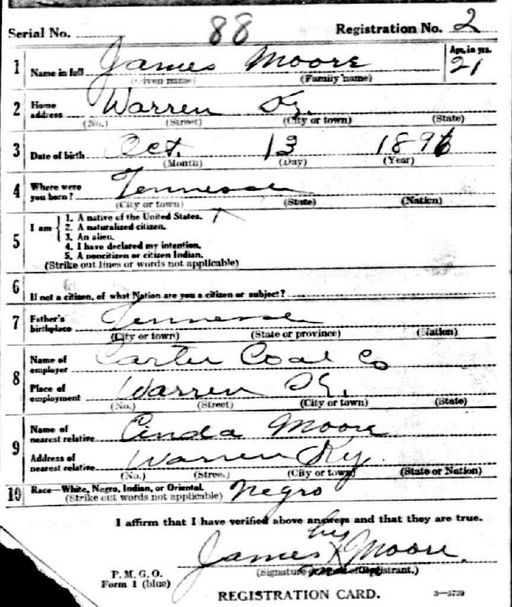 Serial No. 88 Registration No. 2
1 Name in full James Moore Age, in yrs. 21
(Given name) (Family name)
2 Home address Warren Ky.
(No.) (Street) (City or town) (State)
3 Date of birth Oct. 13 1896
(Month) (Day) (Year)
4 Where were you born? Tennessee
(City or town) (State) (Nation)
5 I am
1. A native of the United States. X
2. A naturalized citizen.
3. An alien.
4. I have declared my intention.
5. A noncitizen or citizen Indian.
(Strike out lines or words not applicable)
6 If not a citizen, of what Nation are you a citizen or subject?
7 Father's birthplace Tennessee
(City or town) (State or province) (Nation)
8 Name of employer Carter Coal Co
Place of employment Warren Ky.
(No.) (Street) (City or town) (State)
9 Name of nearest relative Cinda Moore
Address of nearest relative Warren Ky.
(No.) (Street) (City or town) (State or Nation)
10 Race—White, Negro, Indian, or Oriental. Negro
(Strike out words not applicable)
I affirm that I have verified above answers and that they are true.
his
James X Moore.
(Signature or mark of Registrant.)
P. M. G. O.
Form 1 (blue) REGISTRATION CARD. 3—5739